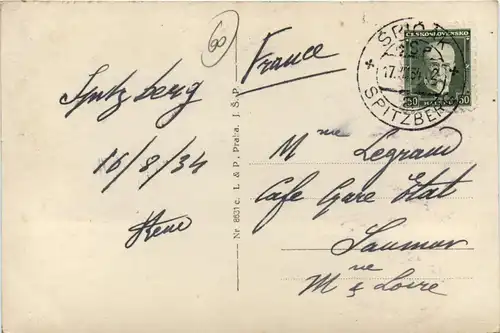 60
France
Spitzberg
16/8/34
René
Nr. 8631 c. L. & P., Praha. J. Š. P.
ČESKOSLOVENSKO
50 50
ŠPIČÁK
17.
SPITZBERG
Mme Legrand
Cafe Gare Etat
Saumur
M ne & Loire